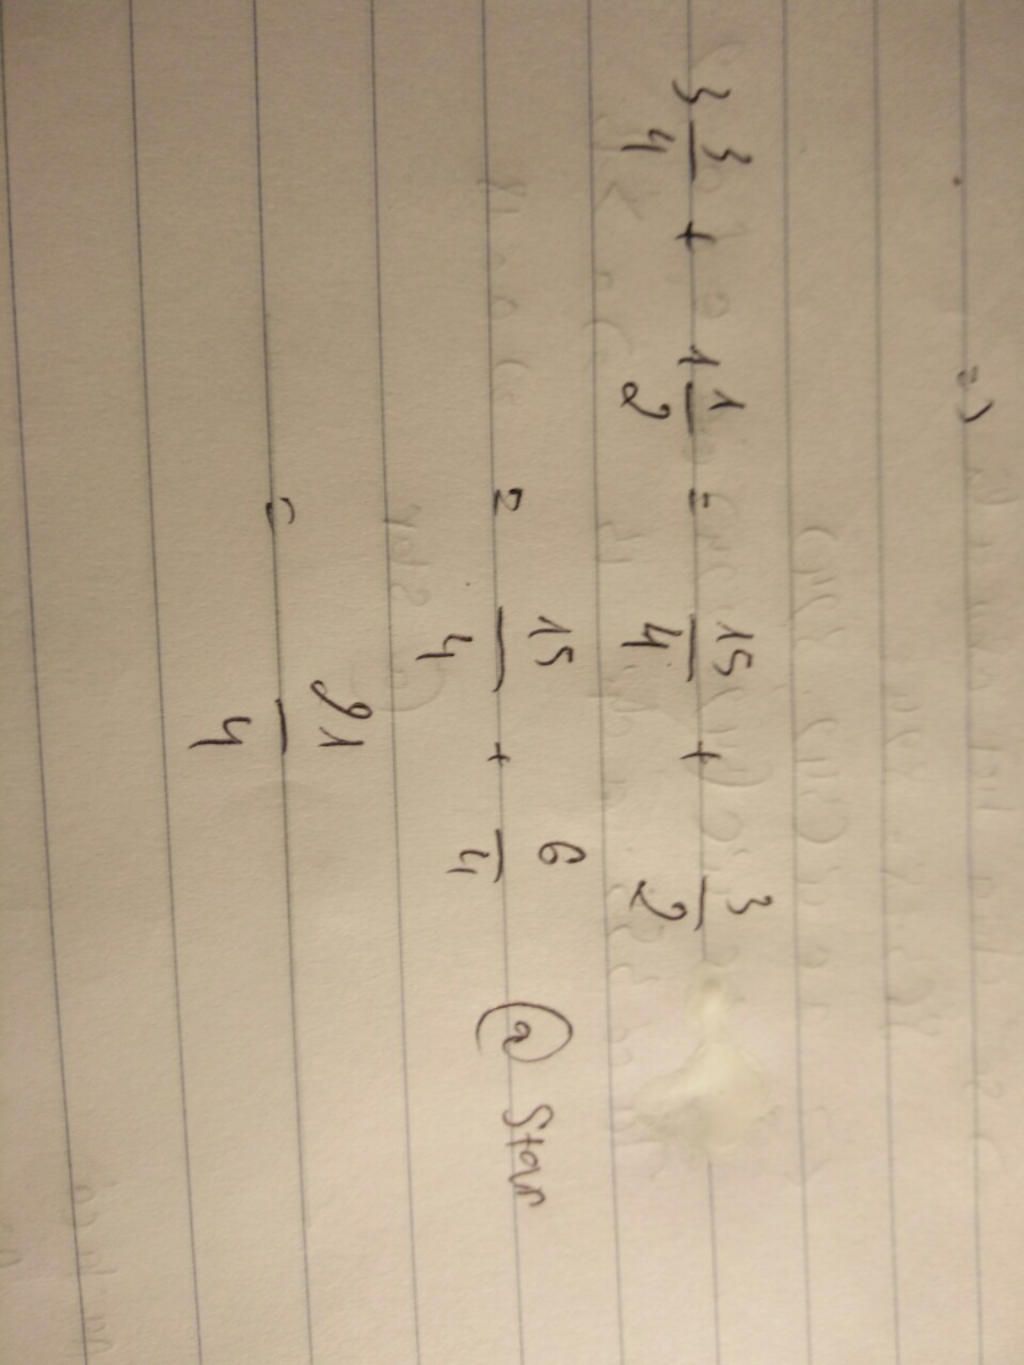 3 3/4 + 1 1/2 = 15/4 + 3/2
= 15/4 + 6/4 @ Star
= 21/4